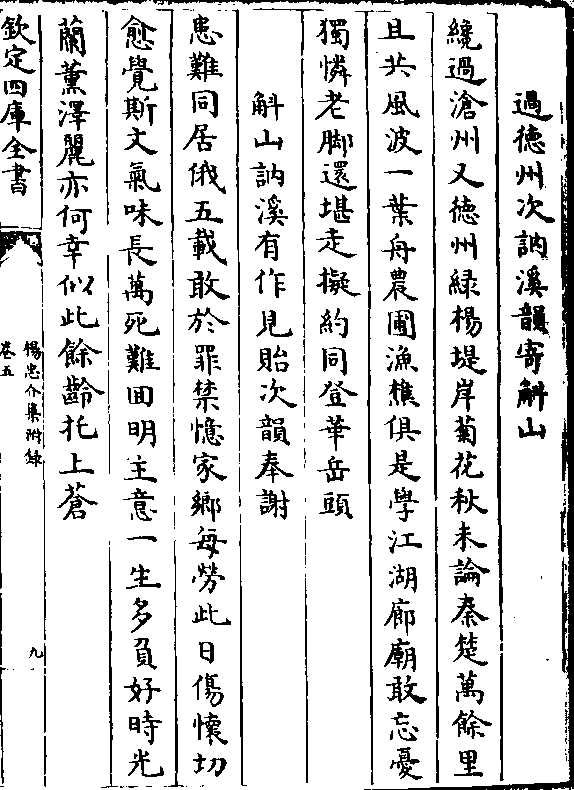 過德州次訥溪韻寄斛山
纔過滄州又德州綠楊堤岸菊花秋未論秦楚萬餘里
且共風波一葉舟農圃漁樵俱是學江湖廊廟敢忘憂
獨憐老脚還堪走擬約同登華岳頭
斛山訥溪有作見貽次韻奉謝
患難同居俄五載敢於罪禁憶家鄉每勞此日傷懷切
愈覺斯文氣味長萬死難回明主意一生多負好時光
蘭薰澤麗亦何幸似此餘齡托上蒼
欽定四庫全書
楊忠介集附錄
卷五
九